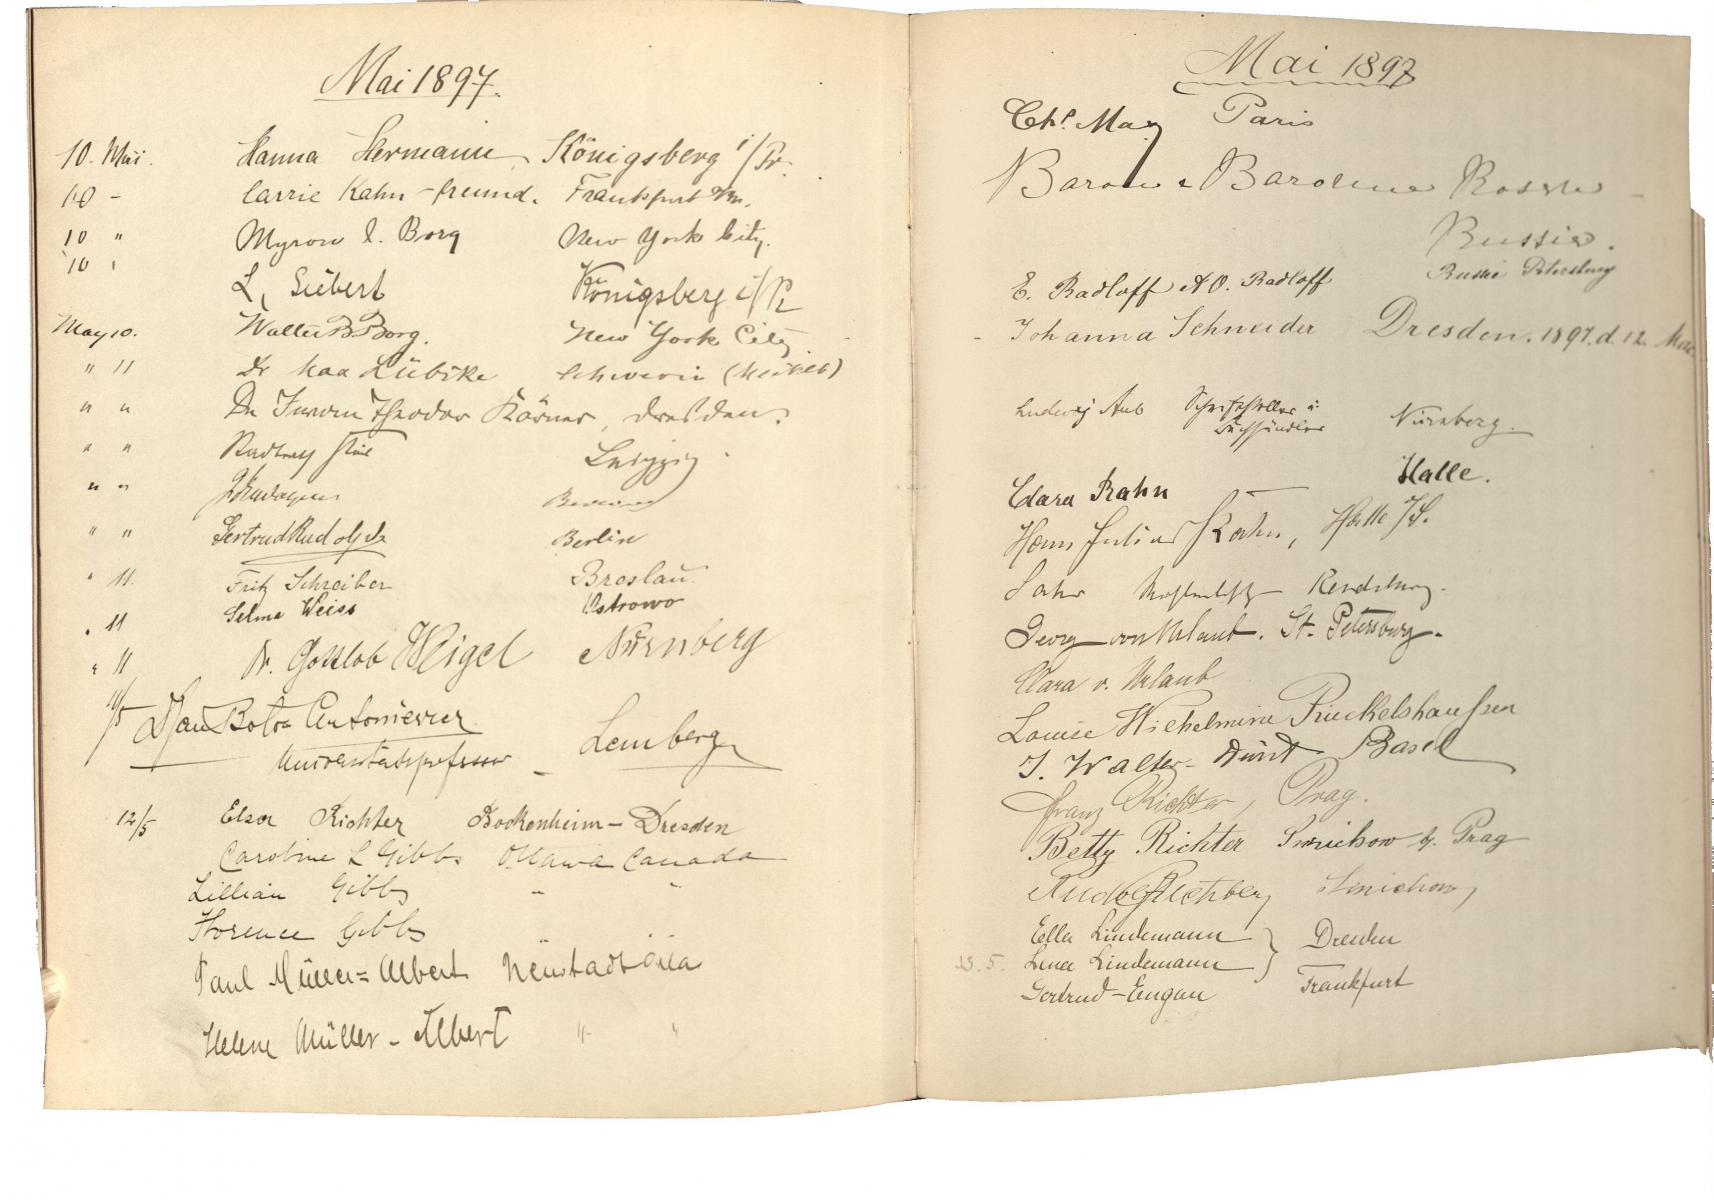 Mai 1897.
10. Mai. Hanna Hermann, Königsberg i/Pr.
10 - Carrie Kahn-freund. Frankfurt a/m.
10 " Myron I. Borg New York City.
10 " L. Siebert Königsberg i/Pr
May 10. Walter B. Borg. New York City
" 11 Dr Max Lübcke Schwerin (Meckl)
" " Dr Theodor Körner, Dresden.
" " Leipzig.
" " Berlin
" " Gertrud Rudolph Berlin
" 11. Fritz Schreiber Breslau.
" 11 Selma Weiss Ostrowo
" 11 Dr. Gottlob Weigel Nürnberg
11/5 Jan Bołoz Antoniewicz
Universitätsprofessor Lemberg
12/5 Elsa Richter Bockenheim - Dresden
Caroline L Gibbs Ottawa Canada
Lillian Gibbs " "
Florence Gibbs
Paul Müller=Albert Neustadt Orla
Helene Müller-Albert " "
Mai 1897
Chs. May Paris
Baron & Baronene
Russie.
E. Radloff A O. Radloff Russie Petersburg
- Johanna Schneider Dresden. 1897. d. 12. Mai.
Ludwig Aub Schriftsteller u.
Buchhändler Nürnberg.
Clara Kahn — Halle.
Hans Julius Kahn, Halle /S.
Rendsburg.
Georg von Urlaub. St. Petersburg.
Clara v. Urlaub
Louise Wilhelmine Rückelshaussen
J. Walter-Dürst Basel
Franz Richter, Prag.
Betty Richter Smichow b/ Prag
Smichow,
Ella Lindemann } Dresden
13. 5. Lina Lindemann
Gertrud - Engau Frankfurt